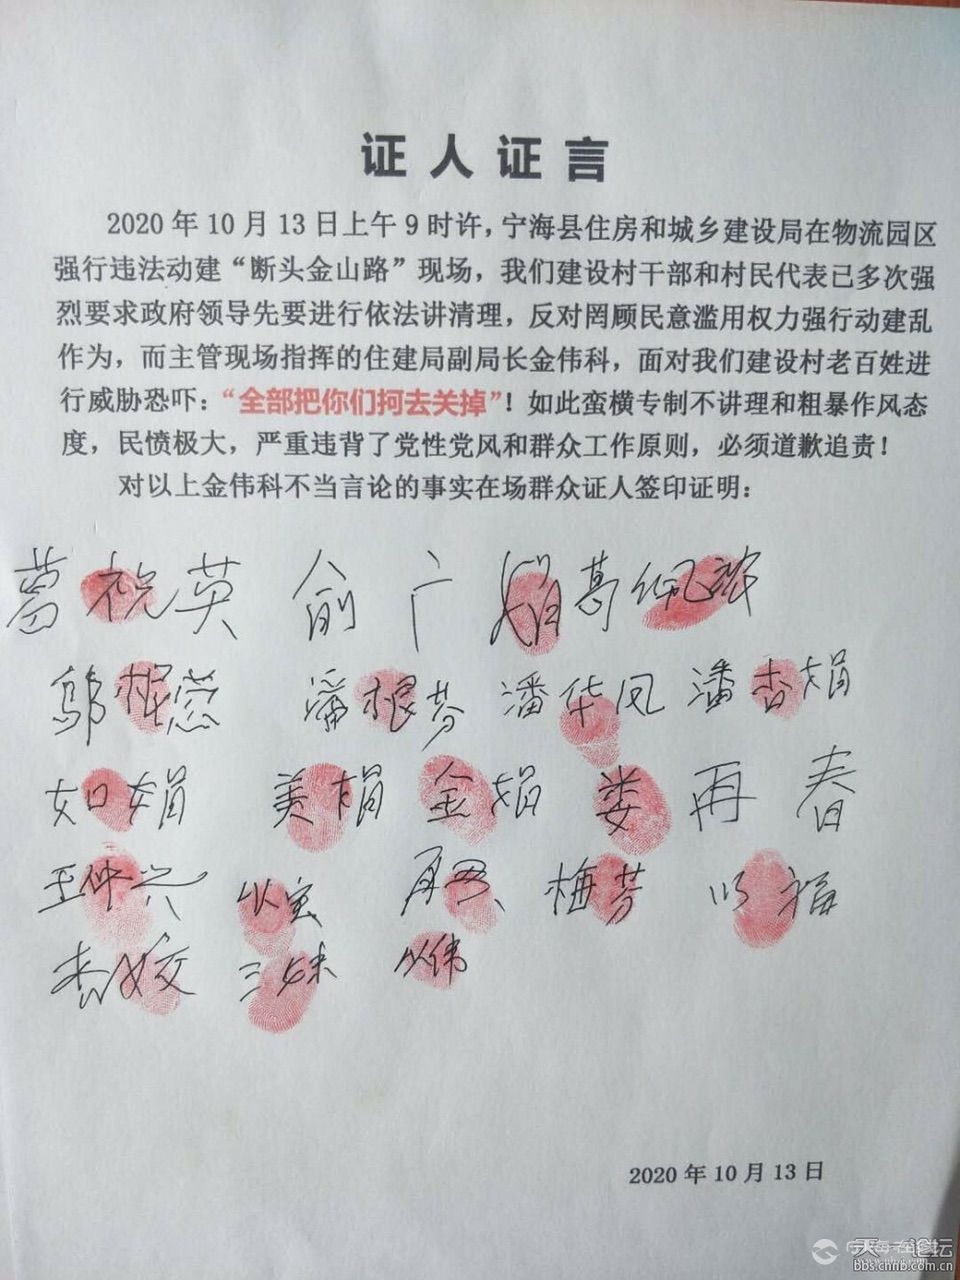 证人证言
2020年10月13日上午9时许，宁海县住房和城乡建设局在物流园区
强行违法动建“断头金山路”现场，我们建设村干部和村民代表已多次强
烈要求政府领导先要进行依法讲清理，反对罔顾民意滥用权力强行动建乱
作为，而主管现场指挥的住建局副局长金伟科，面对我们建设村老百姓进
行威胁恐吓：“全部把你们抲去关掉”！如此蛮横专制不讲理和粗暴作风态
度，民愤极大，严重违背了党性党风和群众工作原则，必须道歉追责！
对以上金伟科不当言论的事实在场群众证人签印证明：
葛祝英 俞广娟 葛佩
邬根 潘根芬 潘华凤 潘杏娟
如娟 美娟 金娟 娄再春
王仲兴 以宝 梅芬 以福
杏姣 三妹 以伟
2020年10月13日
天一论坛
bbs.cnnb.com.cn